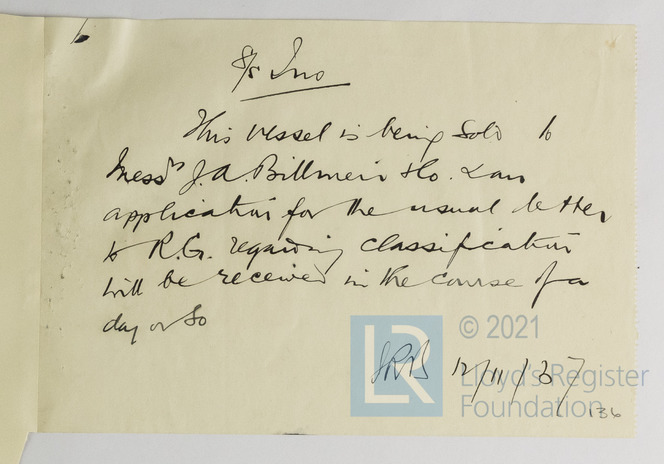 S/S Ino
This vessel is being sold to
Messrs J. A. Billmeir & Co. & an
application for the usual letter
to R.G. regarding classification
will be received in the course of a
day or so
12/11/37
LR
© 2021
Lloyd's Register
Foundation
136